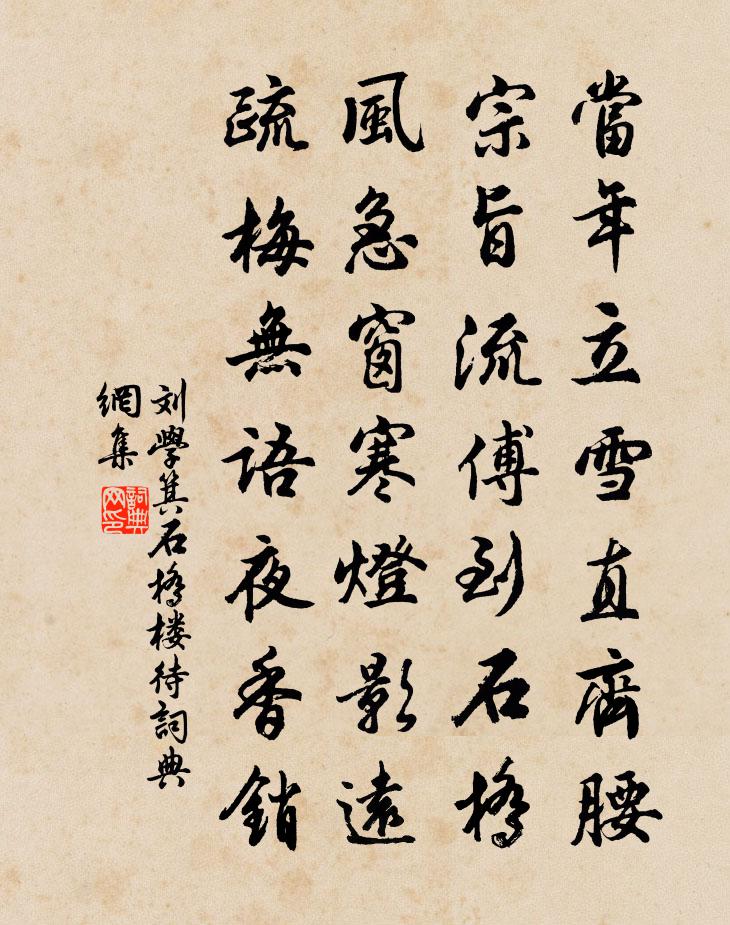 當年立雪直齊腰
宗旨流傅到石橋
風急窗寒燈影遠
疏梅無語夜香銷
刘學箕石橋楼待詞典
網集
詞典网印